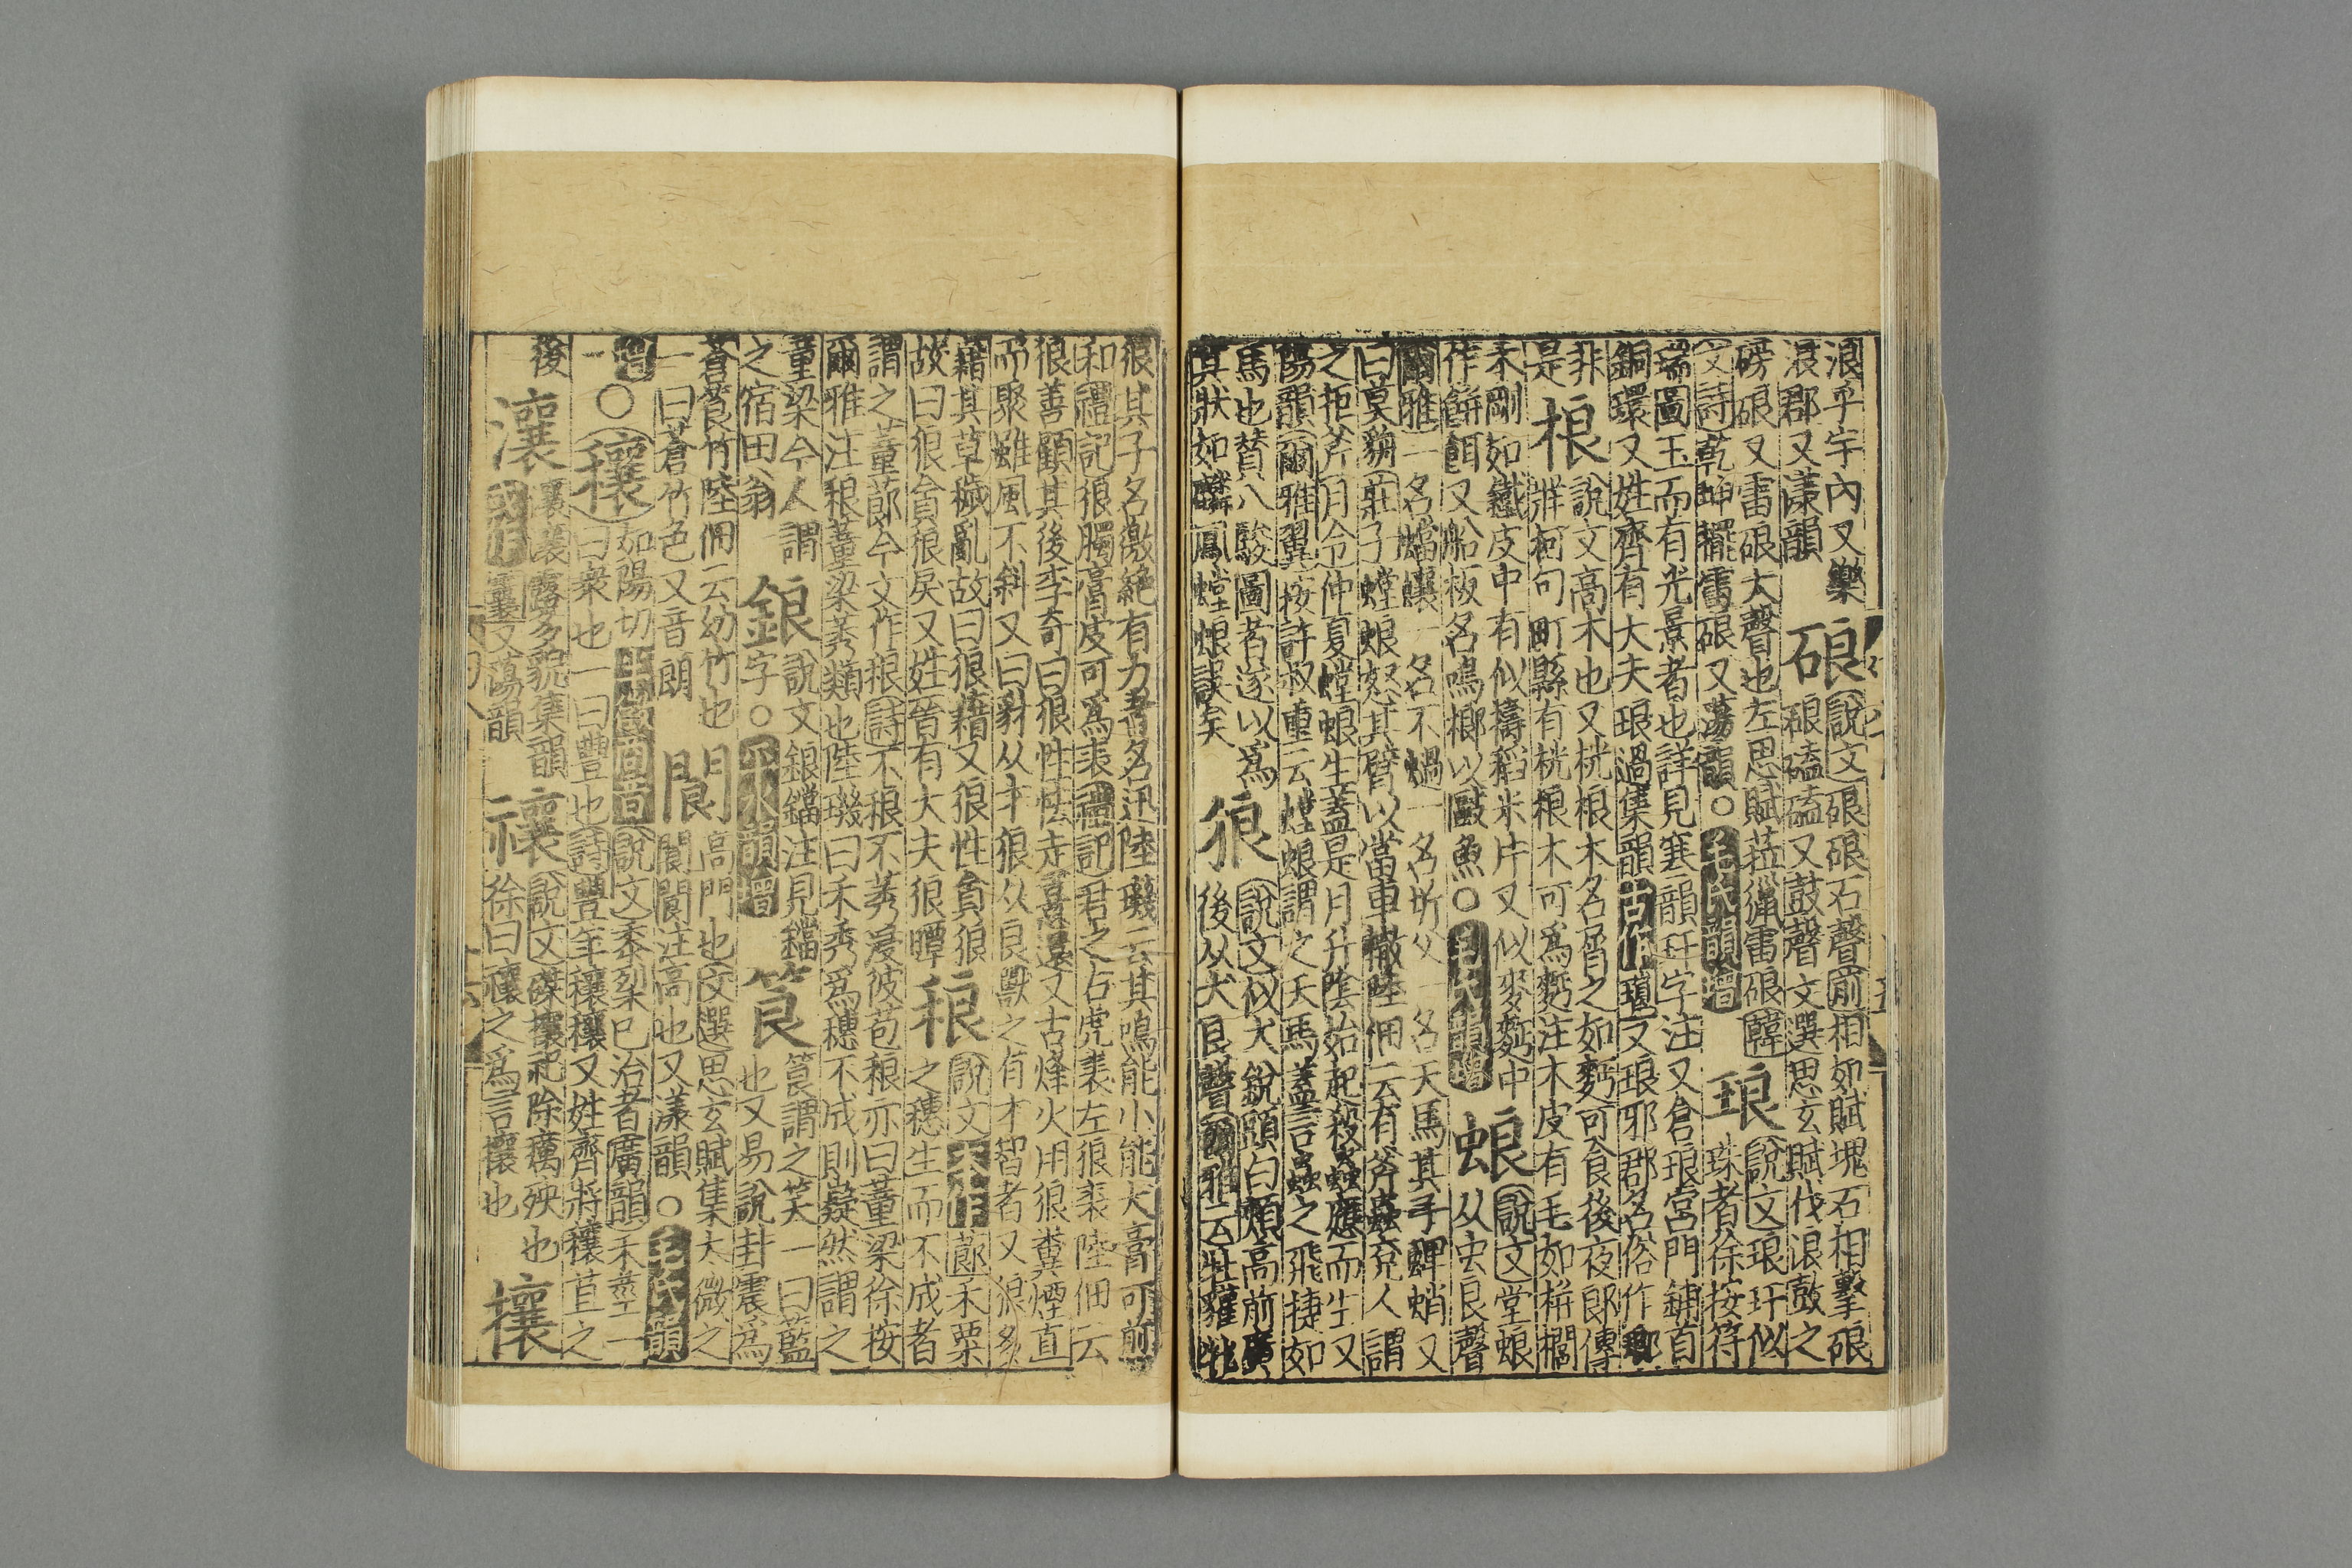 浪乎宇內又樂
浪郡又漾韻
硠
說文硠硠石聲前相如賦磈石相擊硠
硠磕磕又鼓聲文選思玄賦伐浪鼓之
磅硠又雷硠大聲也左思賦菈擸雷硠韓
文詩乾坤擺雷硠又蕩韻○毛氏韻增
琅
說文琅玕似
珠者徐按符
瑞圖玉而有光景者也詳見寒韻玕字注又倉琅宮門鋪首
銅環又姓齊有大夫琅過集韻古作又琅邪郡名俗作瑯
非
是
桹
說文高木也又桄桹木名屑之如麪可食後夜郎傳
牂柯句町縣有桄桹木可為麪注木皮有毛如栟櫚
木剛如鐵皮中有似擣稻米片又似麥麪中
作餅餌又船板名鳴榔以敺魚○毛氏韻增
蜋
說文堂蜋
从虫良聲
爾雅一名蟷蠰一名不蜩一名蚚父一名天馬其子蜱蛸又
曰莫貈莊子螳蜋怒其臂以當車轍陸佃云有斧蟲兗人謂
之拒斧月令仲夏螳蜋生蓋是月升陰始起殺蟲應而生又
陽韻爾雅翼按許叔重云螳蜋謂之天馬蓋言蟲之飛捷如
馬也贊八駿圖者遂以為
其狀如驎鳳螳蜋誤矣
狼
說文似犬銳頭白頰高前廣
後从犬良聲爾雅云牡獾牝
狼其子名獥絕有力者名迅陸璣云其鳴能小能大膏可前
和禮記狼臅膏皮可為裘禮記君之右虎裘左狼裘陸佃云
狼善顧其後李奇曰狼性怯走喜還又古烽火用狼糞煙直
而聚雖風不斜又曰豺从才狼从良獸之有才智者又狼多
藉其草穢亂故曰狼藉又狼性貪狼
故曰狼貪狼戾又姓晉有大夫狼瞫
稂
說文本作蓈禾粟
之穗生而不成者
謂之蕫蓈今文作稂詩不稂不莠浸彼苞稂亦曰蕫梁徐按
爾雅注稂蕫梁莠類也陸璣曰禾秀為穗不成則嶷然謂之
童梁今人謂
之宿田翁
鋃
說文鋃鐺注見鐺
字○平水韻增
筤
筤謂之笑一曰藍
也又易說卦震為
蒼筤竹陸佃云幼竹也
一曰蒼竹色又音朗
閬
高門也文選思玄賦集太微之
閬閬注高也又漾韻○毛氏韻
增
○穰
如陽切說文黍䄺已治者廣韻禾莖一
曰眾也一曰豐也詩豐年穰穰又姓齊將穰苴之
後
瀼
瀼瀼露多貌集韻
又蕩韻
禳
說文磔禳祀除癘殃也
徐曰禳之為言攘也
攘